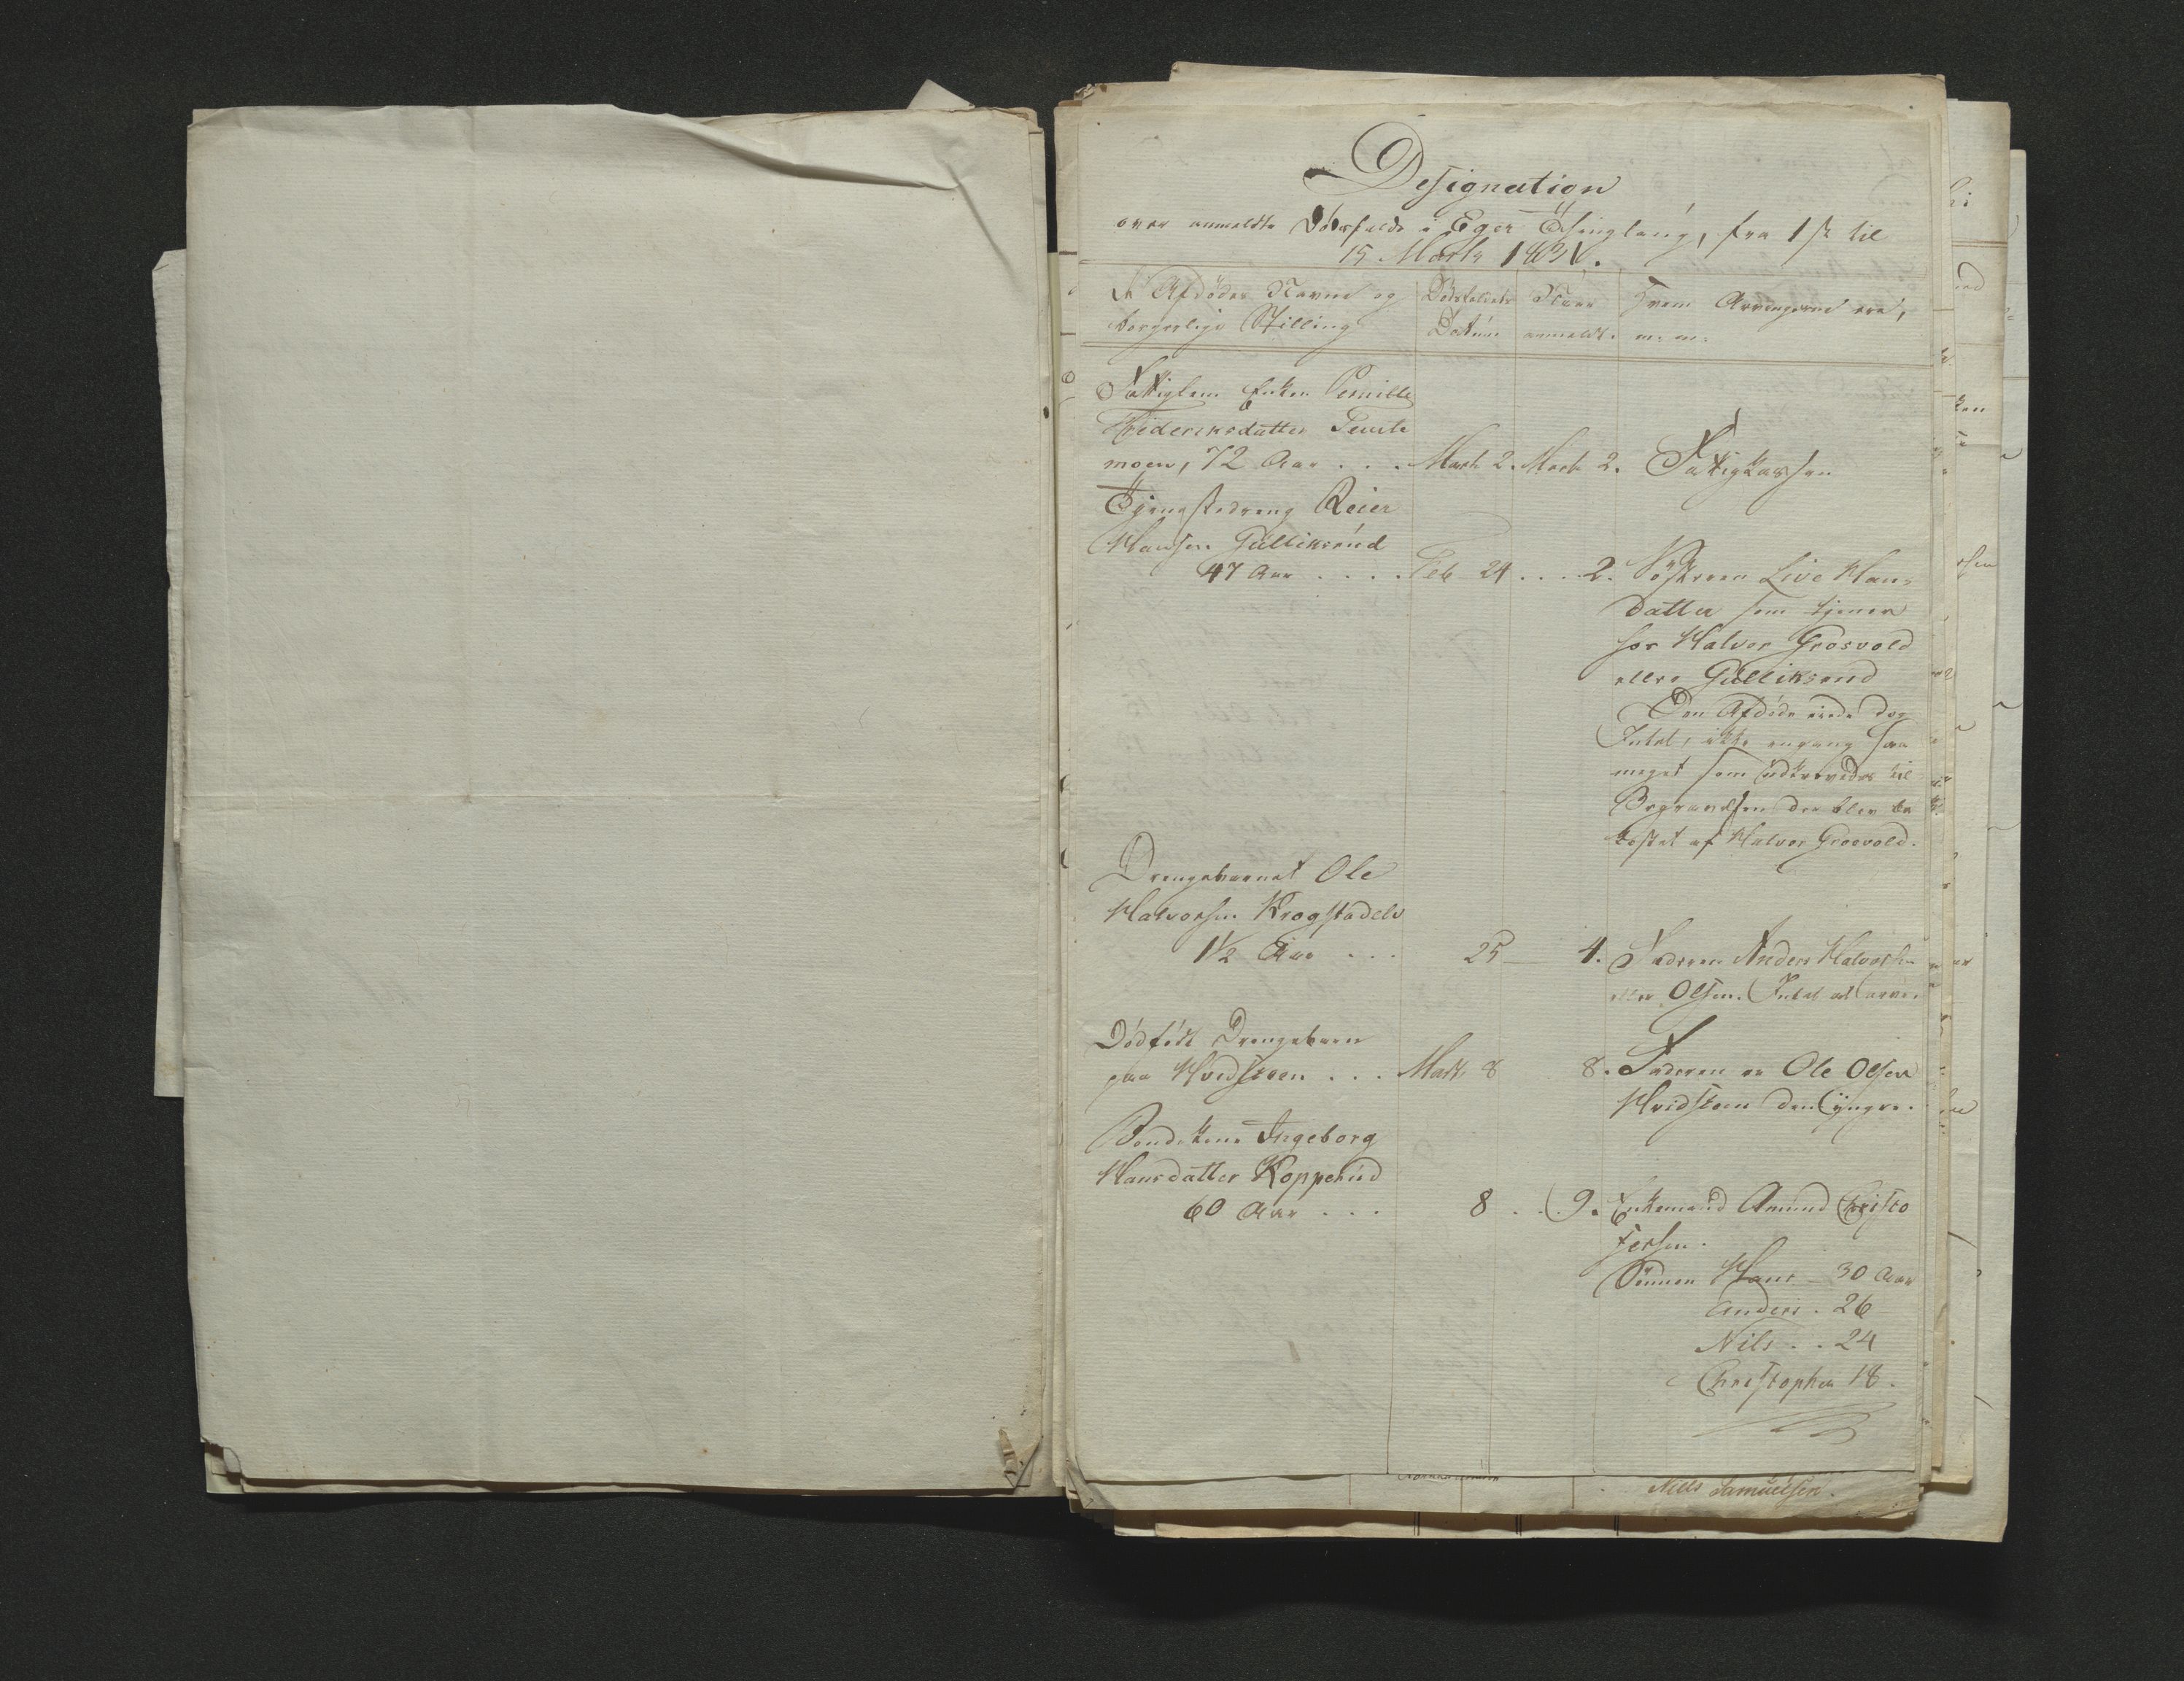 Designation
over anmeldte Dödsfalde i Eger Thinglaug, fra 1ste til
15 Marts 1831.
De Afdödes Navne og
borgerlige Stilling
Dödsfaldets
Datum
Naar
anmeldt.
Hvem Arvingerne ere,
m. m.
Fattiglem Enken Pernille
Frideriksdatter
moen, 72 Aar . . . Marts 2. Marts 2. Fattigkassen
Tjenestedreng Reier
Hansen Gulliksrud
47 Aar . . . . Feb 24 . . . . 2. Søsteren Live Hans-
datter som tjener
hos Halvor Grosvold
eller Gulliksrud
Den Afdöde eiede dog
Intet, ikke engang saa
meget som udkrævedes til
Begravelsen der blev be
kostet af Halvor Grosvold.
Drengebarnet Ole
Halvorsen Krogstadelv
1½ Aar . . . 25 — 4. Faderen Anders Halvorsen
eller Olsen. Intet at arve.
Dödfödt Drengebarn
paa Hvidsteen . . . Marts 8 8. Faderen er Ole Olsen
Hvidsteen den yngre.
Bondekone Ingeborg
Hansdatter Kopperud
60 Aar . . . 8 . . 9. Enkemand Amund Christo
fersen.
Sönnen Hans — 30 Aar
Anders . 26
Nils . . 24
Christopher 18.
Nills Samuelsen.